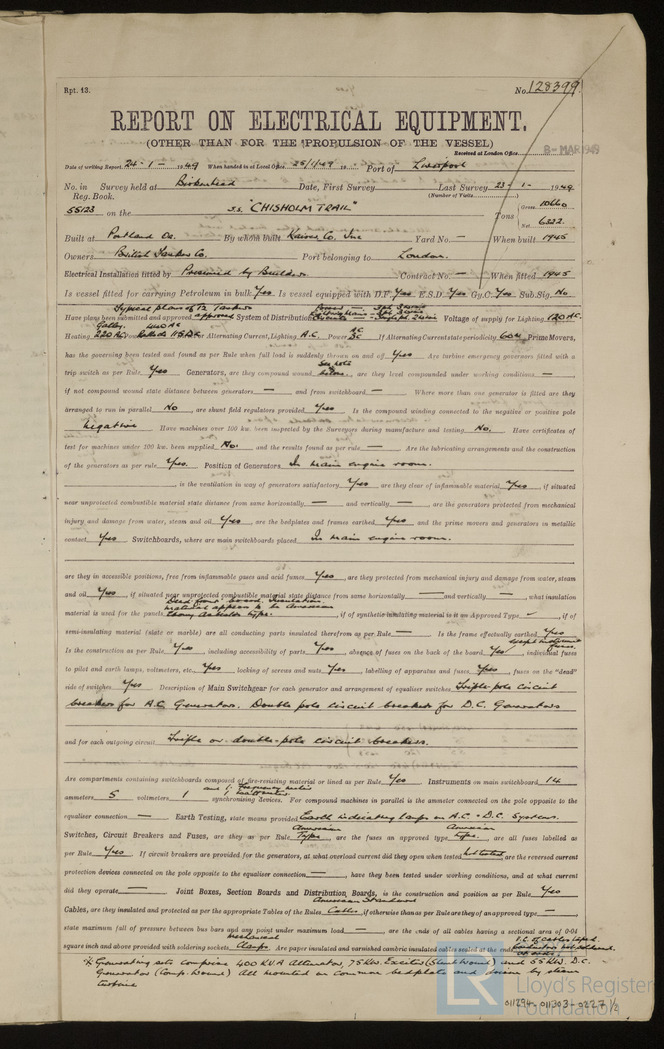 Rpt. 13.
No. 128399
REPORT ON ELECTRICAL EQUIPMENT.
(OTHER THAN FOR THE PROPULSION OF THE VESSEL)
Received at London Office 8-MAR 1949
Date of writing Report 24-1- 1949 When handed in at Local Office 25/1/49 19 Port of Liverpool
No. in Survey held at Birkenhead Date, First Survey Last Survey 23-1- 1949
Reg. Book. (Number of Visits)
55123 on the s.s. "CHISHOLM TRAIL" Tons Gross 10660 Net 6322
Built at Portland Or. By whom built Kaiser Co. Inc Yard No. — When built 1945
Owners British Tanker Co. Port belonging to London.
Electrical Installation fitted by Presumed by Builders Contract No. — When fitted 1945
Is vessel fitted for carrying Petroleum in bulk Yes Is vessel equipped with D.F. Yes E.S.D. Yes Gy.C. Yes Sub.Sig. No
Typical plans of T2 Tankers
Have plans been submitted and approved approved System of Distribution Voltage of supply for Lighting 120 AC.
Heating Power Direct or Alternating Current, Lighting A.C. Power AC DC If Alternating Current state periodicity 60 Prime Movers,
has the governing been tested and found as per Rule when full load is suddenly thrown on and off Yes Are turbine emergency governors fitted with a
trip switch as per Rule Yes Generators, are they compound wound See note below, are they level compounded under working conditions —
if not compound wound state distance between generators — and from switchboard — Where more than one generator is fitted are they
arranged to run in parallel No, are shunt field regulators provided Yes Is the compound winding connected to the negative or positive pole
Negative Have machines over 100 kw. been inspected by the Surveyors during manufacture and testing No. Have certificates of
test for machines under 100 kw. been supplied No. and the results found as per rule — Are the lubricating arrangements and the construction
of the generators as per rule Yes. Position of Generators In main engine room.
, is the ventilation in way of generators satisfactory Yes are they clear of inflammable material Yes, if situated
near unprotected combustible material state distance from same horizontally — and vertically —, are the generators protected from mechanical
injury and damage from water, steam and oil Yes, are the bedplates and frames earthed Yes and the prime movers and generators in metallic
contact Yes Switchboards, where are main switchboards placed In main engine room.
are they in accessible positions, free from inflammable gases and acid fumes Yes, are they protected from mechanical injury and damage from water, steam
and oil Yes, if situated near unprotected combustible material state distance from same horizontally — and vertically —, what insulation
Dead front board, insulation
material appears to be American
material is used for the panels Ebony Asbestos type., if of synthetic insulating material is it an Approved Type ✓, if of
semi-insulating material (slate or marble) are all conducting parts insulated therefrom as per Rule — Is the frame effectually earthed Yes
Is the construction as per Rule Yes, including accessibility of parts Yes, absence of fuses on the back of the board Yes except instrument fuses, individual fuses
to pilot and earth lamps, voltmeters, etc. Yes locking of screws and nuts Yes, labelling of apparatus and fuses Yes, fuses on the "dead"
side of switches Yes Description of Main Switchgear for each generator and arrangement of equaliser switches Triple-pole circuit
breakers for A.C. Generators. Double pole circuit breaker for D.C. Generators
and for each outgoing circuit Triple or double-pole circuit breakers.
Are compartments containing switchboards composed of fire-resisting material or lined as per Rule Yes Instruments on main switchboard 14
and 1. Frequency meter
ammeters 5 voltmeters 1 synchronising devices. For compound machines in parallel is the ammeter connected on the pole opposite to the
equaliser connection — Earth Testing, state means provided Earth indicating lamps on A.C. & D.C. Systems.
Switches, Circuit Breakers and Fuses, are they as per Rule American Type, are the fuses an approved type American type., are all fuses labelled as
per Rule Yes If circuit breakers are provided for the generators, at what overload current did they open when tested Not tested are the reversed current
protection devices connected on the pole opposite to the equaliser connection —, have they been tested under working conditions, and at what current
did they operate — Joint Boxes, Section Boards and Distribution Boards, is the construction and position as per Rule Yes
Cables, are they insulated and protected as per the appropriate Tables of the Rules American Standard Cable, if otherwise than as per Rule are they of an approved type —
state maximum fall of pressure between bus bars and any point under maximum load — are the ends of all cables having a sectional area of 0·04
square inch and above provided with soldering sockets Mechanical Clamps. Are paper insulated and varnished cambric insulated cables sealed at the ends
* Generating sets comprise 400 KVA Alternator, 75 KW. Exciter (Shunt Wound) and 55 KW. D.C.
Generator (Comp. Wound) All mounted on common bedplate and driven by steam
turbine
LR Lloyd's Register Foundation
011294-011303-0227 1/2